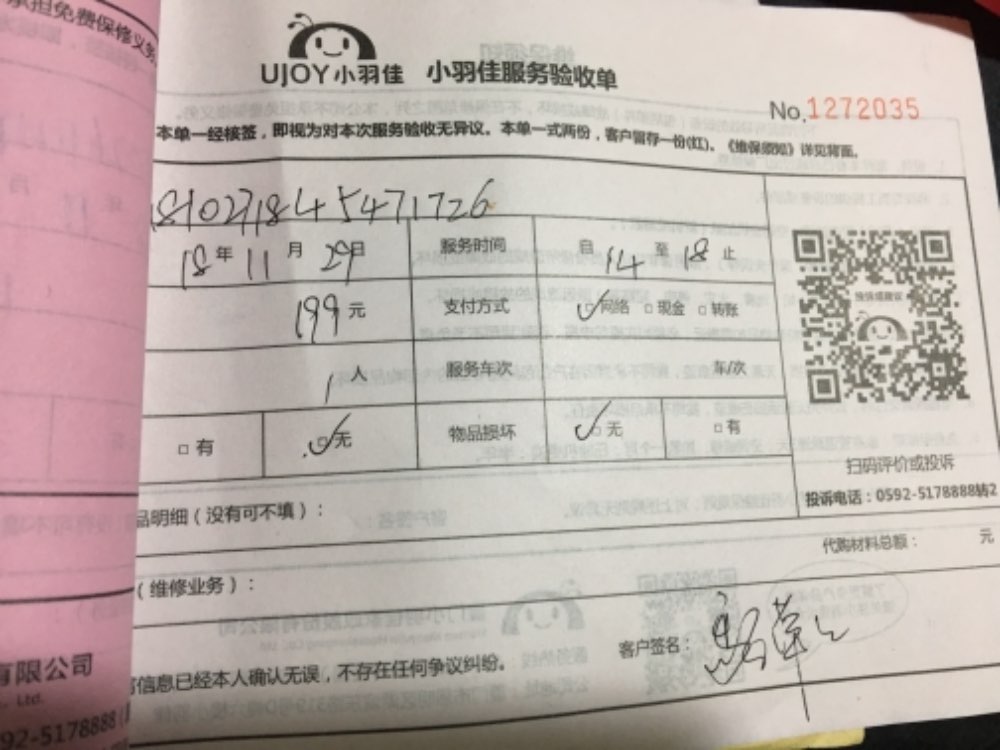 承担免费保修义务
UJOY小羽佳 小羽佳服务验收单
No.1272035
本单一经接签，即视为对本次服务验收无异议。本单一式两份，客户留存一份(红)。《维保须知》详见背面。
1810271845471726
18年11月29日 服务时间 自14至18止
199元 支付方式 网络 现金 转账
1人 服务车次 车/次
有 无 物品损坏 无 有
投诉或建议
扫码评价或投诉
投诉电话：0592-5178888转2
品明细（没有可不填）：
代购材料总额： 元
（维修业务）：
客户签名：
信息已经本人确认无误，不存在任何争议纠纷。
有限公司
Ltd.
92-5178888